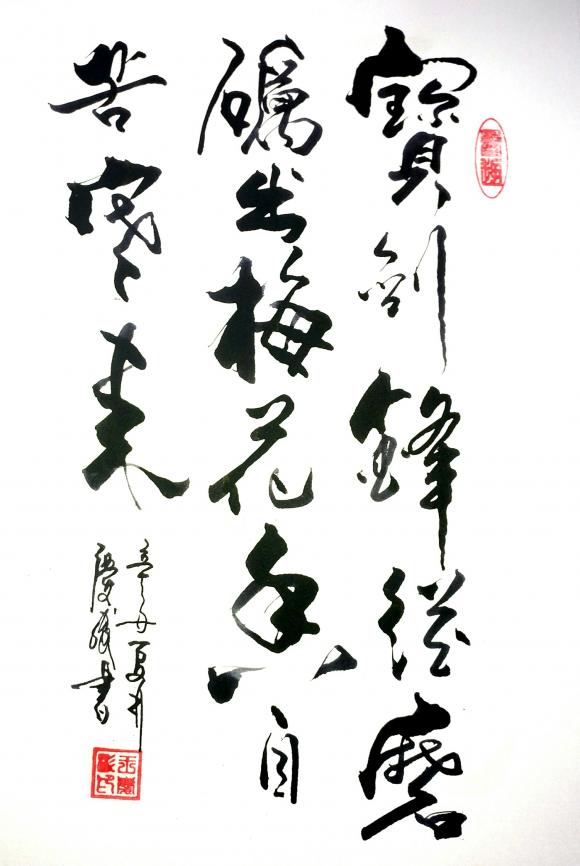 寶劍鋒從磨
礪出梅花香自
苦寒來
辛丑夏月
慶成書